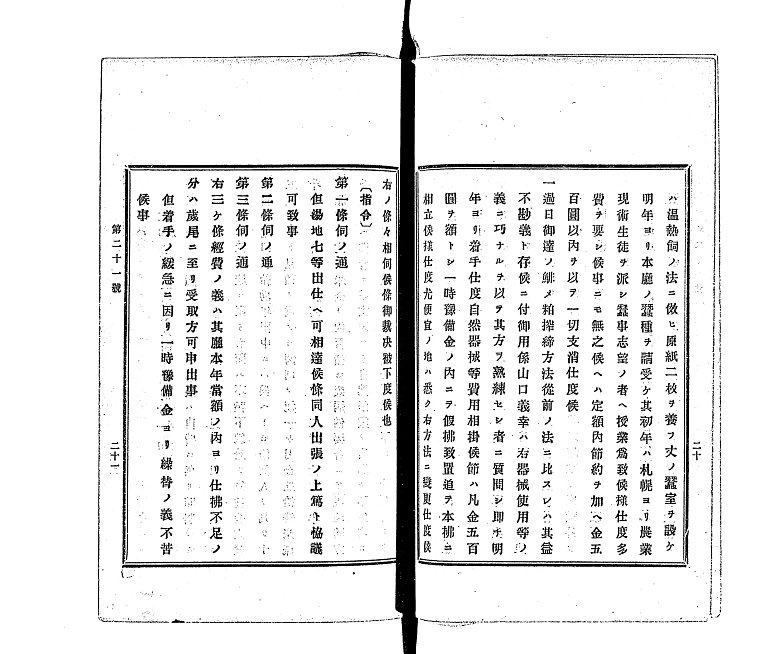 ハ温熱飼ノ法ニ倣ヒ原紙二枚ヲ養フ丈ノ蠶室ヲ設ケ
明年ヨリ本廳ノ蠶種ヲ請受ケ其初年ハ札幌ヨリ農業
現術生徒ヲ派シ蠶事志望ノ者ヘ授業爲致候樣仕度多
費ヲ要シ候事ニモ無之候ヘハ定額內節約ヲ加ヘ金五
百圓以內ヲ以ヲ一切支消仕度候
一過日御達ノ鯡〆粕搾締方法從前ノ法ニ比スレハ其益
不勘義ト存候ニ付御用係山口義幸ハ右器械使用等ノ
義ニ巧ナルヲ以ヲ其方ヲ熟練セシ者ニ質問シ即チ明
年ヨリ着手仕度自然器械等費用相掛候節ハ凡金五百
圓ヲ額トシ一時豫備金ノ內ニヲ假拂致置追ヲ本拂ニ
相立候樣仕度尤便宜ノ地ハ悉ク右方法ニ變更仕度候
二十
右ノ條々相伺候條御裁決被下度候也
〔指令〕
第一條伺ノ通
但湯地七等出仕ヘ可相達候條同人出張ノ上篤ト協議
可致事
第二條伺ノ通
第三條伺ノ通
右三ケ條經費ノ義ハ其廳本年當額ノ內ヨリ仕拂不足ノ
分ハ歲尾ニ至リ受取方可申出事
但着手ノ緩急ニ因リ一時豫備金ヨリ繰替ノ義不苦
候事
第二十一號
二十一